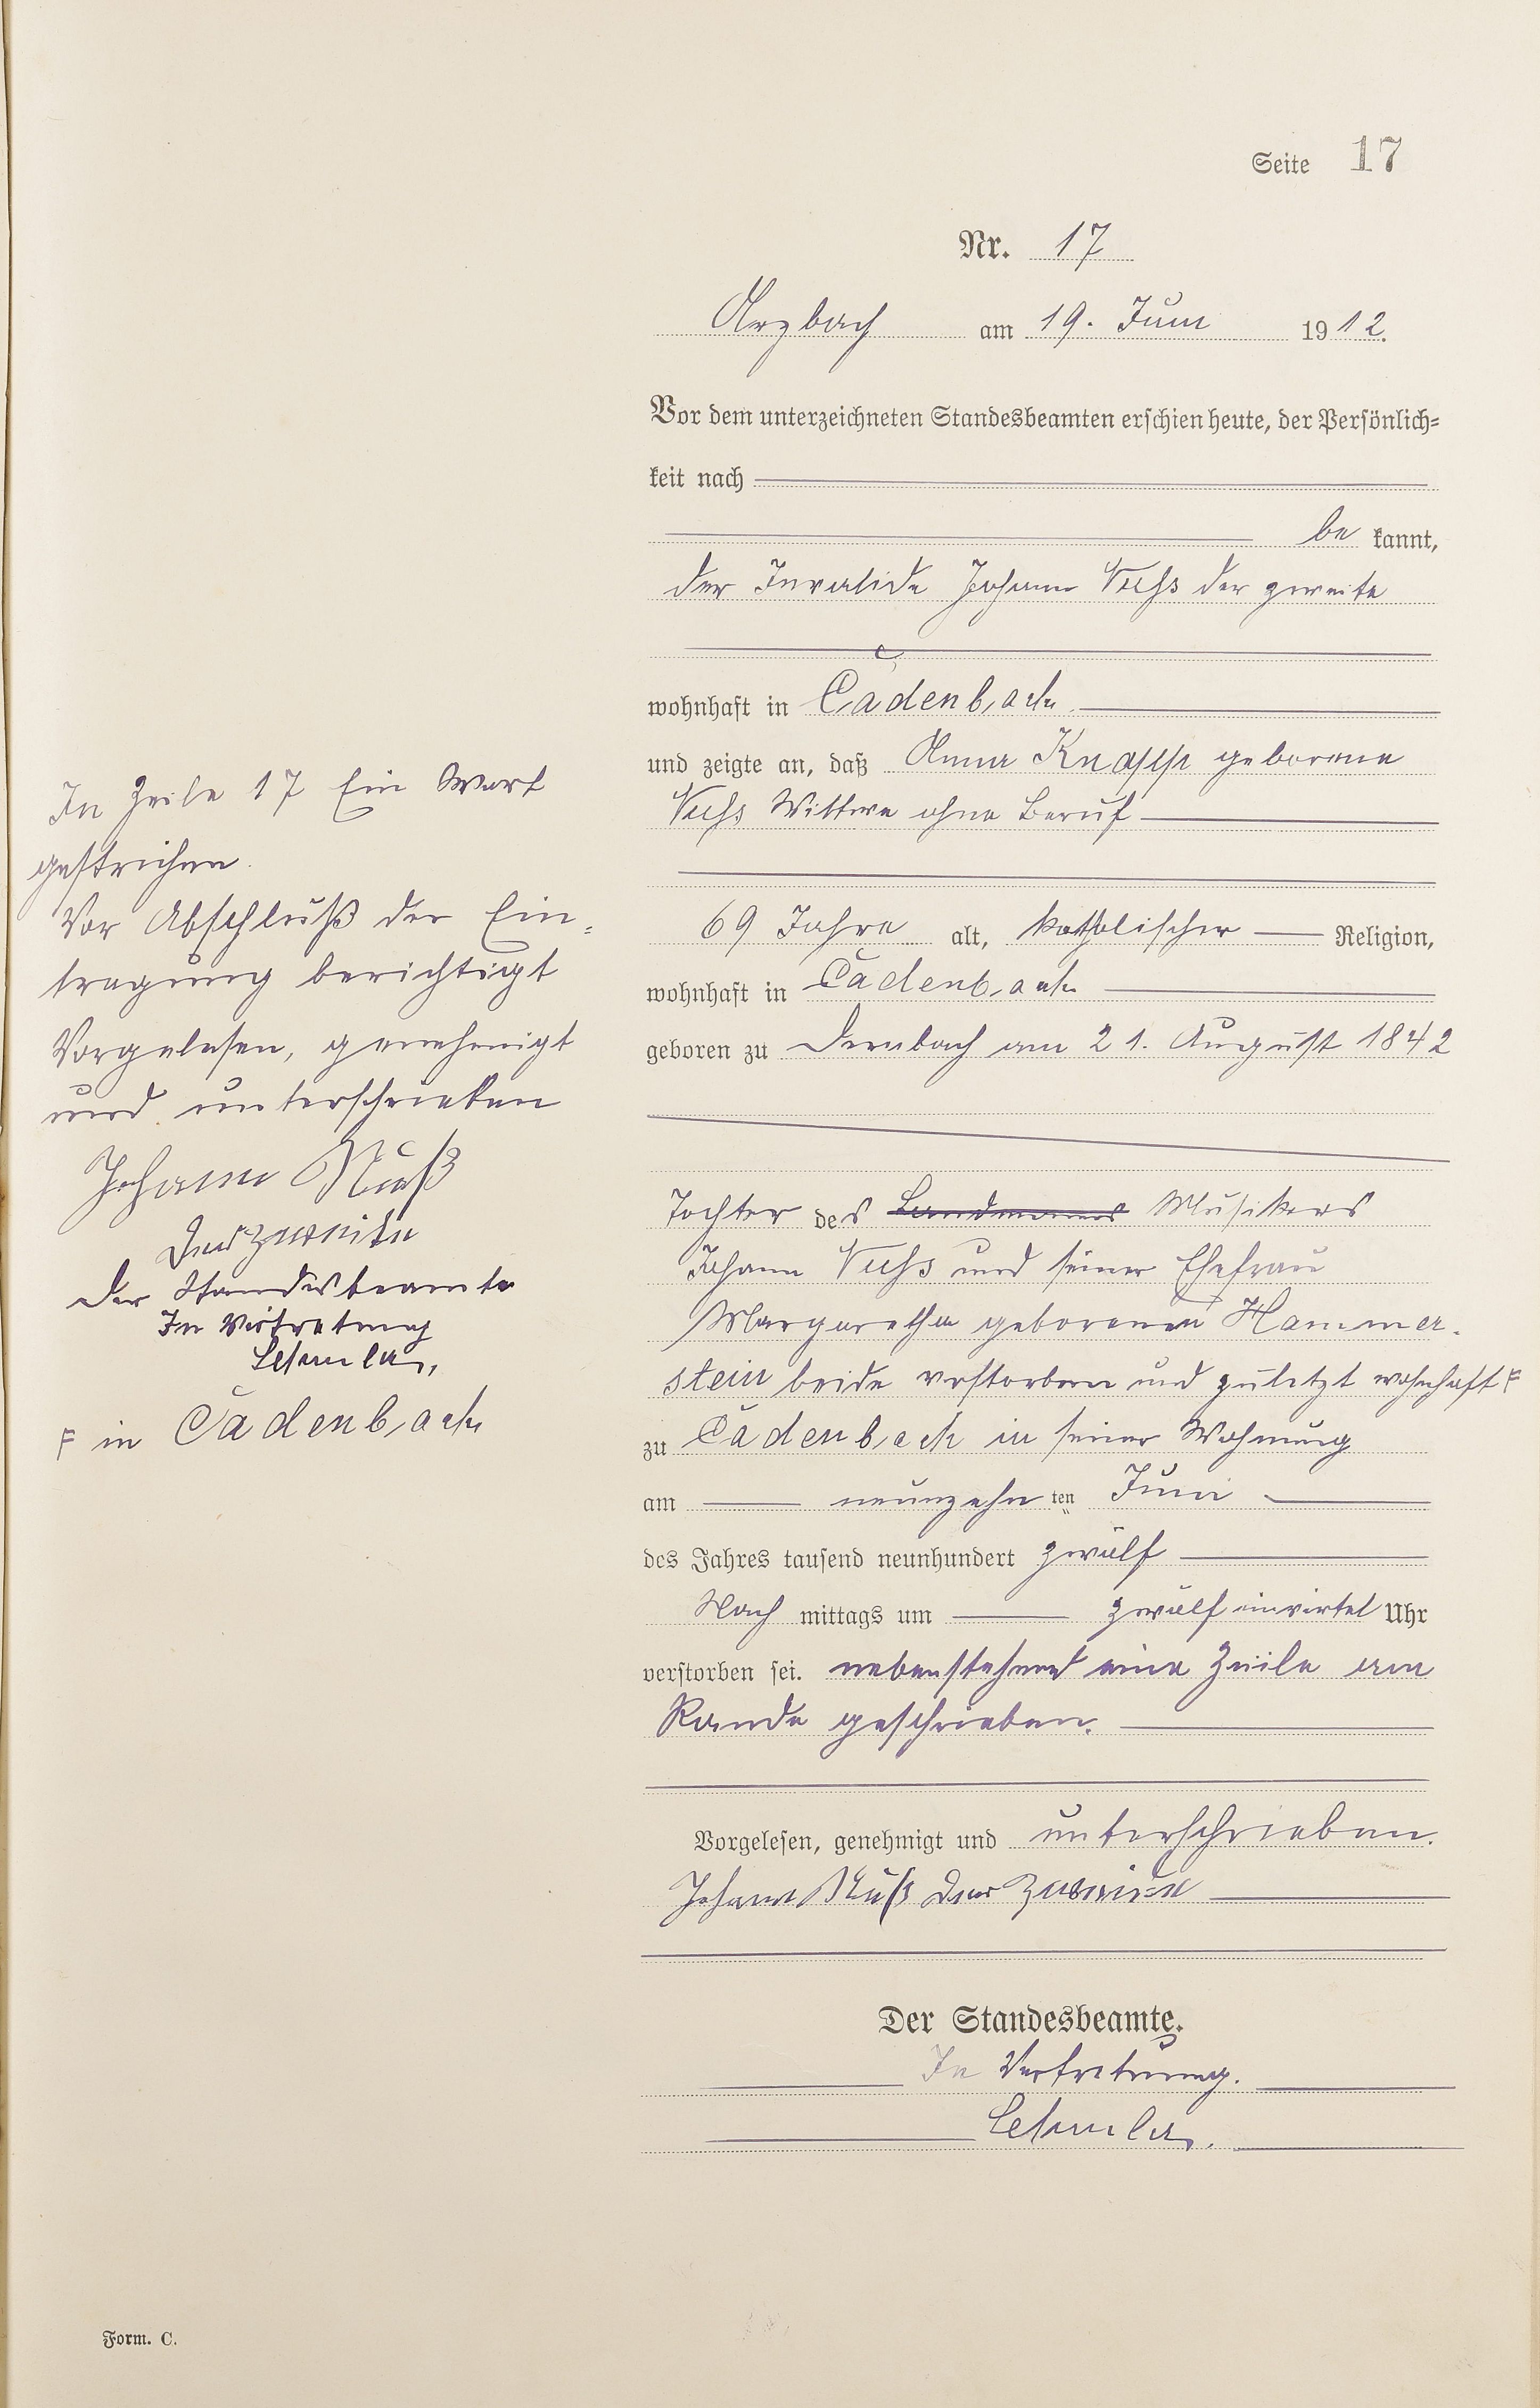 Seite 17
Nr. 17
Arzbach am 19. Juni 1912.
Vor dem unterzeichneten Standesbeamten erschien heute, der Persönlich=
keit nach
be kannt,
der Invalide Johann Nuhs der zweite
wohnhaft in Cadenbach
und zeigte an, daß Anna Knapp geborene
Nuhs Wittwe ohne Beruf
69 Jahre alt, katholischer Religion,
wohnhaft in Cadenbach
geboren zu Dernbach am 21. August 1842
Tochter des Landmannes Musikers
Johann Nuhs und seiner Ehefrau
Margaretha geborenen Hammer-
stein beide verstorben und zuletzt wohnhaft F
zu Cadenbach in seiner Wohnung
am neunzehn ten Juni
des Jahres tausend neunhundert zwölf
Nach mittags um zwölf einvirtel Uhr
verstorben sei. nebenstehend eine Zeile am
Rande geschrieben.
Vorgelesen, genehmigt und unterschrieben.
Johann Nuß der zweite
Der Standesbeamte.
In Vertretung.
In Zeile 17 Ein Wort
gestrichen.
Vor Abschluß der Ein=
tragung berichtigt
Vorgelesen, genehmigt
und unterschrieben
Johann Nuß
der zweite
Der Standesbeamte
In Vertretung
F in Cadenbach
Form. C.